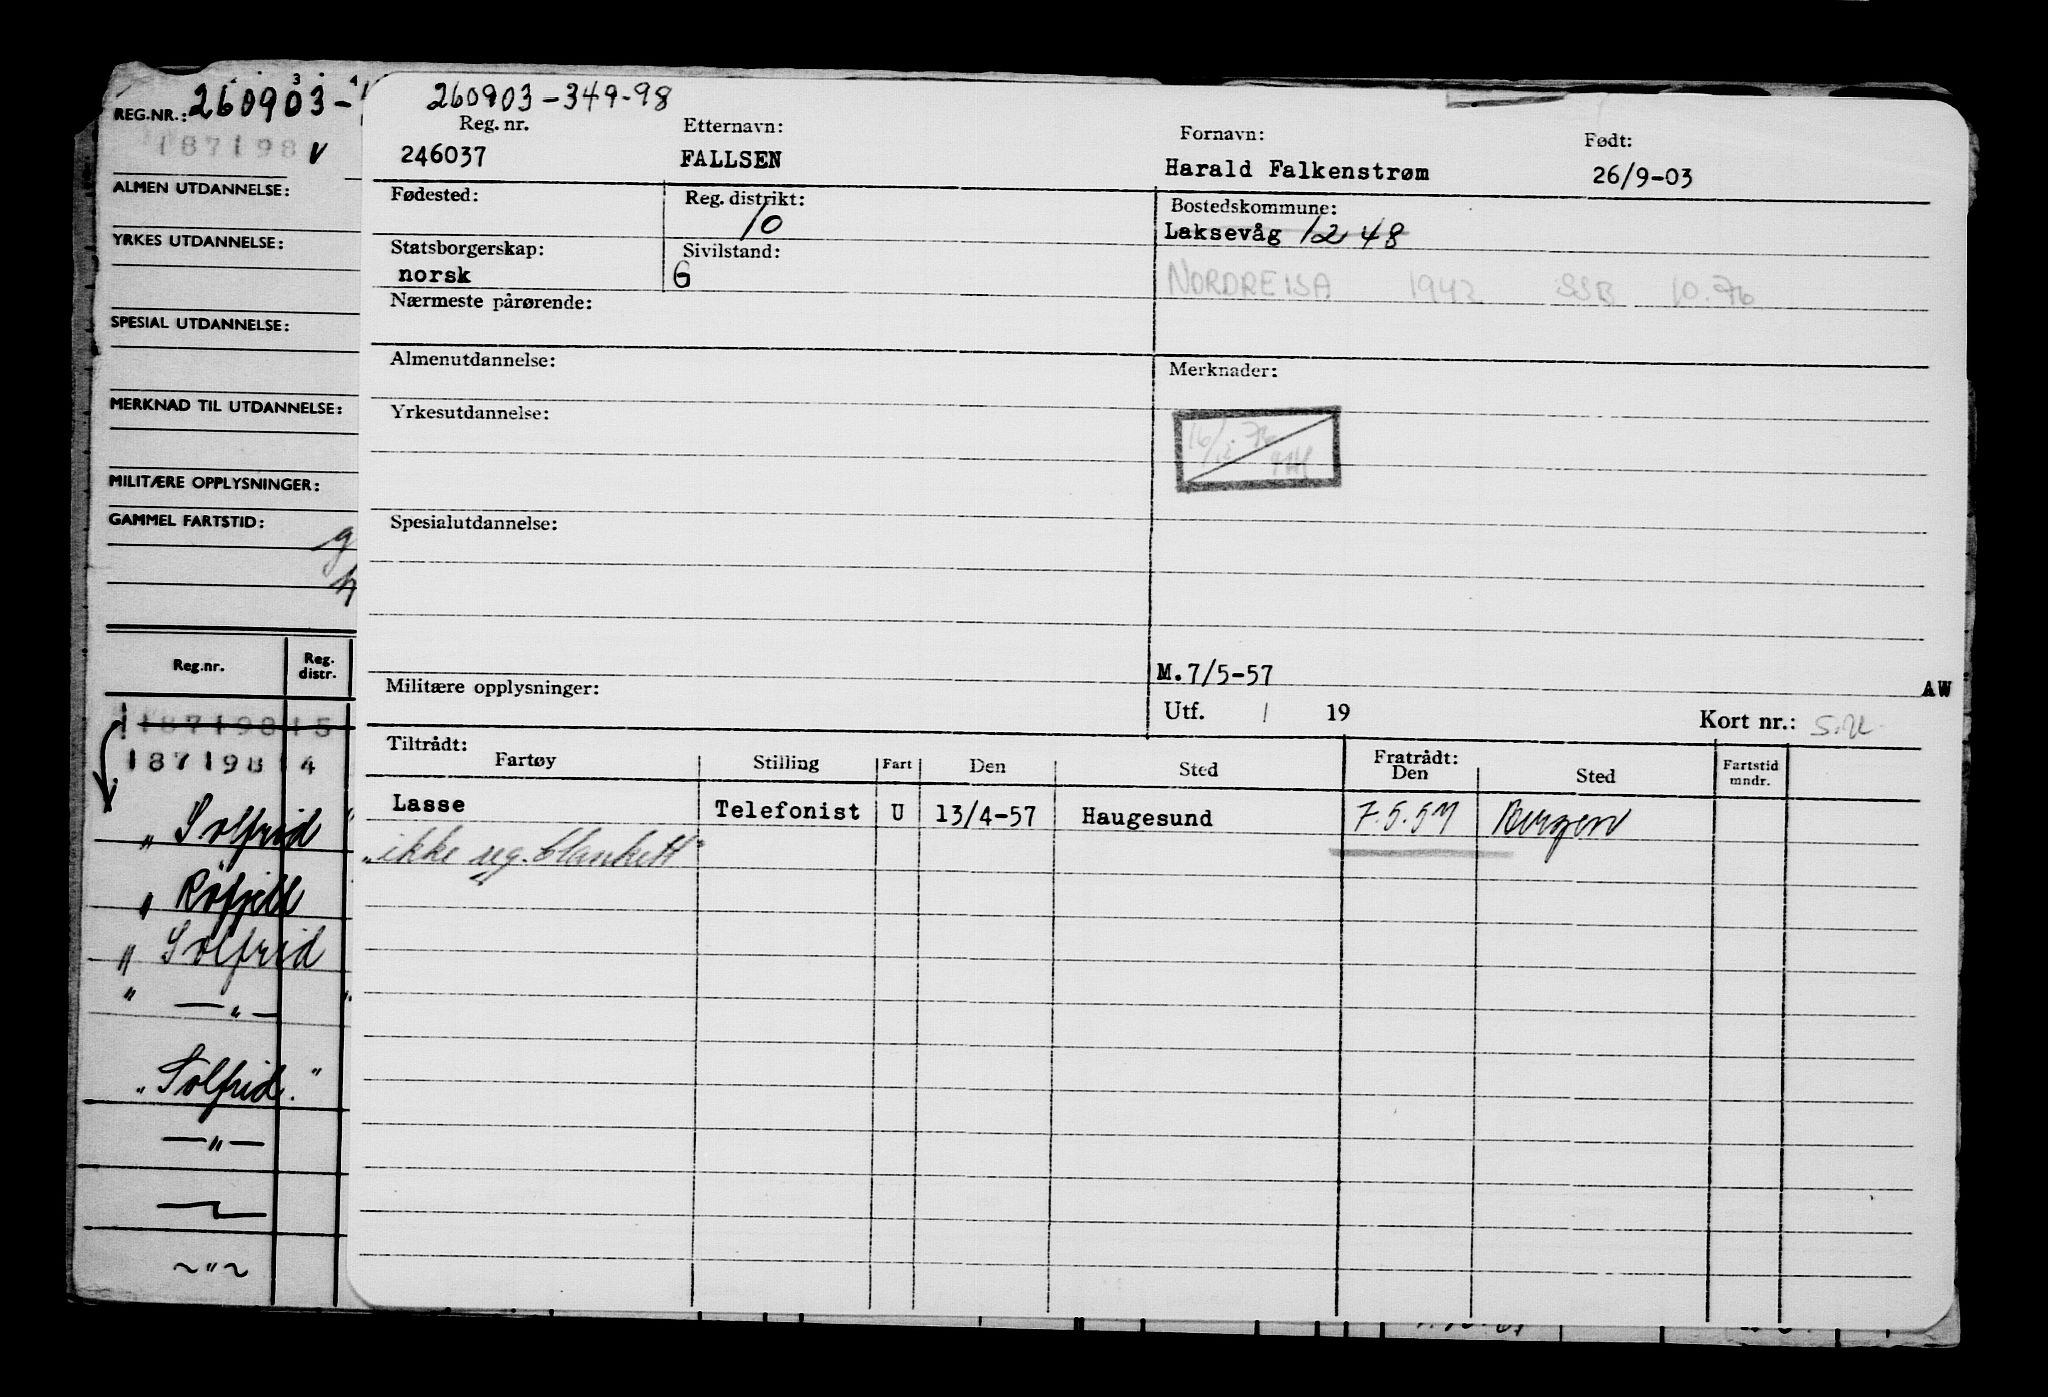 REG.NR.: 260903-
187198 V
ALMEN UTDANNELSE:
YRKES UTDANNELSE:
SPESIAL UTDANNELSE:
MERKNAD TIL UTDANNELSE:
MILITÆRE OPPLYSNINGER:
GAMMEL FARTSTID:
Reg.nr. Reg. distr.
187198 15
187198 14
" Solfrid "
" Röfjell
" Solfrid
" — " — "
" Solfrid. "
— " —
~ " ~
260903-349-98
Reg. nr. Etternavn: Fornavn: Født:
246037 FALLSEN Harald Falkenstrøm 26/9-03
Fødested: Reg. distrikt: Bostedskommune:
10 Laksevåg 1248
Statsborgerskap: Sivilstand:
norsk G NORDREISA 1942 SSB 10.76
Nærmeste pårørende:
Almenutdannelse: Merknader:
Yrkesutdannelse:
Spesialutdannelse:
M.7/5-57
Militære opplysninger: AW
Utf. / 19 Kort nr.:
Tiltrådt: Fratrådt:
Fartøy Stilling Fart Den Sted Den Sted Fartstid mndr.
Lasse Telefonist U 13/4-57 Haugesund 7.5.57 Bergen
"ikke reg. blankett"